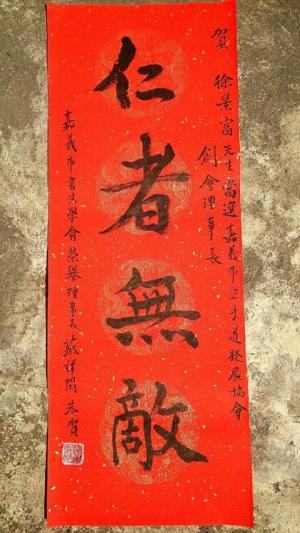 賀 徐景富先生當選嘉義市空手道發展協會
創會理事長
仁者無敵
嘉義市書法學會榮譽理事長蔡詳閔 恭賀